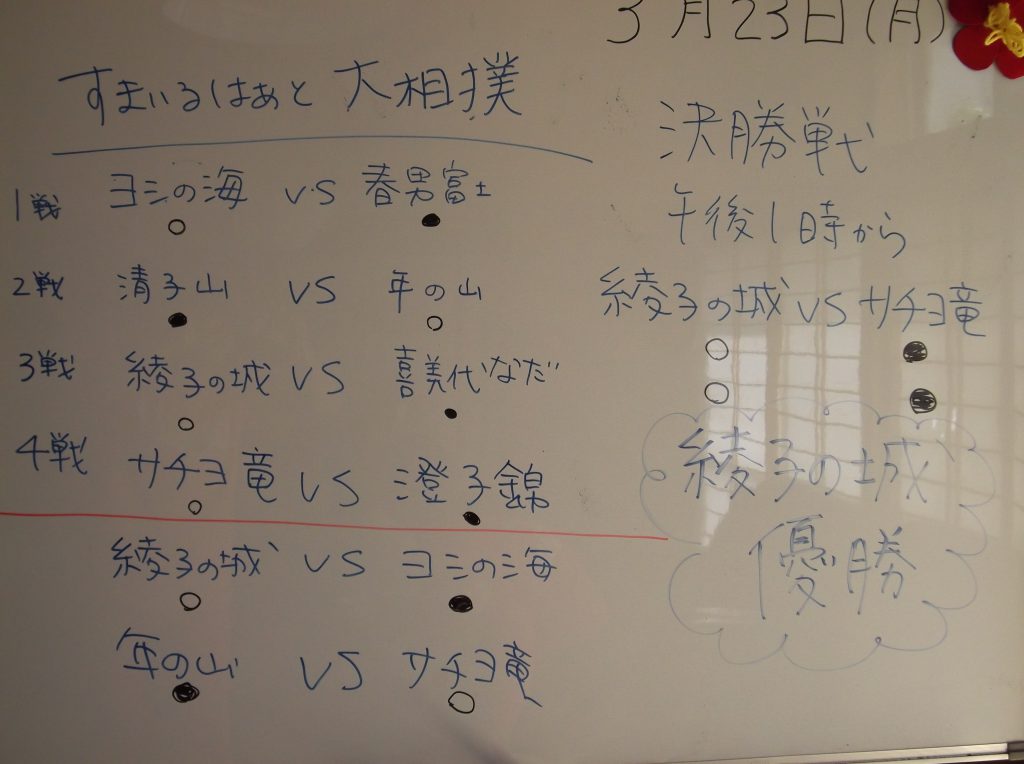 3月23日(月)
すまいるはあと 大相撲
1戦 ヨシの海 VS 春男富士
○ ●
2戦 清子山 VS 年の山
● ○
3戦 綾子の城 VS 喜美代なだ
○ ●
4戦 サチヨ竜 VS 澄子錦
○ ●
綾子の城 VS ヨシの海
○ ●
年の山 VS サチヨ竜
● ○
決勝戦
午後1時から
綾子の城 VS サチヨ竜
○ ●
○ ●
綾子の城
優勝